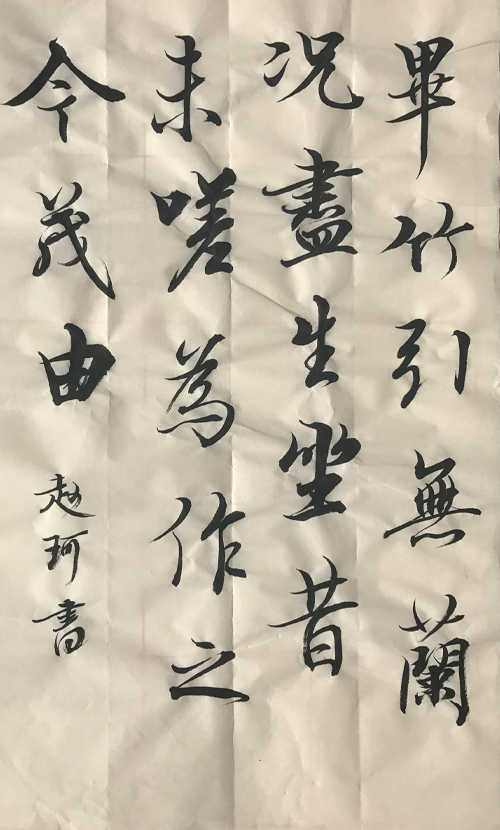 畢竹引無蘭
况盡生坐昔
未嗟為作之
今茂由
赵珂書